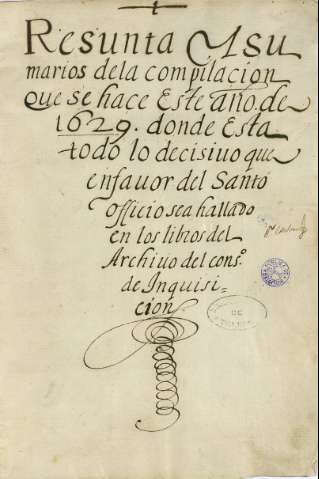 Resunta Y su
marios dela compilacion
que se hace Este año de
1629. donde Esta
todo lo decisiuo que
enfauor del Santo
officio sea hallado
en los libros del
Archiuo del cons.º
de Inquisi-
cion
DE